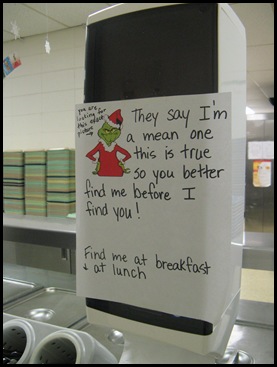 you are
looking for
this exact
picture
They say I'm
a mean one
this is true
so you better
find me before I
find you!
Find me at breakfast
& at lunch